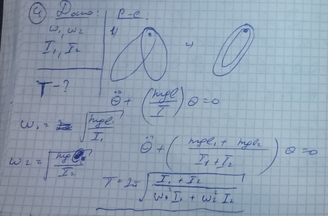 ④ Дано:
ω₁, ω₂
I₁, I₂
T - ?
Р-е:
1)
θ̈ + (mgl/I) θ = 0
ω₁ = √(mgl₁/I₁)
ω₂ = √(mgl₂/I₂)
θ̈ + ((mgl₁ + mgl₂)/(I₁ + I₂)) θ = 0
T = 2π √((I₁ + I₂)/(ω₁² I₁ + ω₂² I₂))